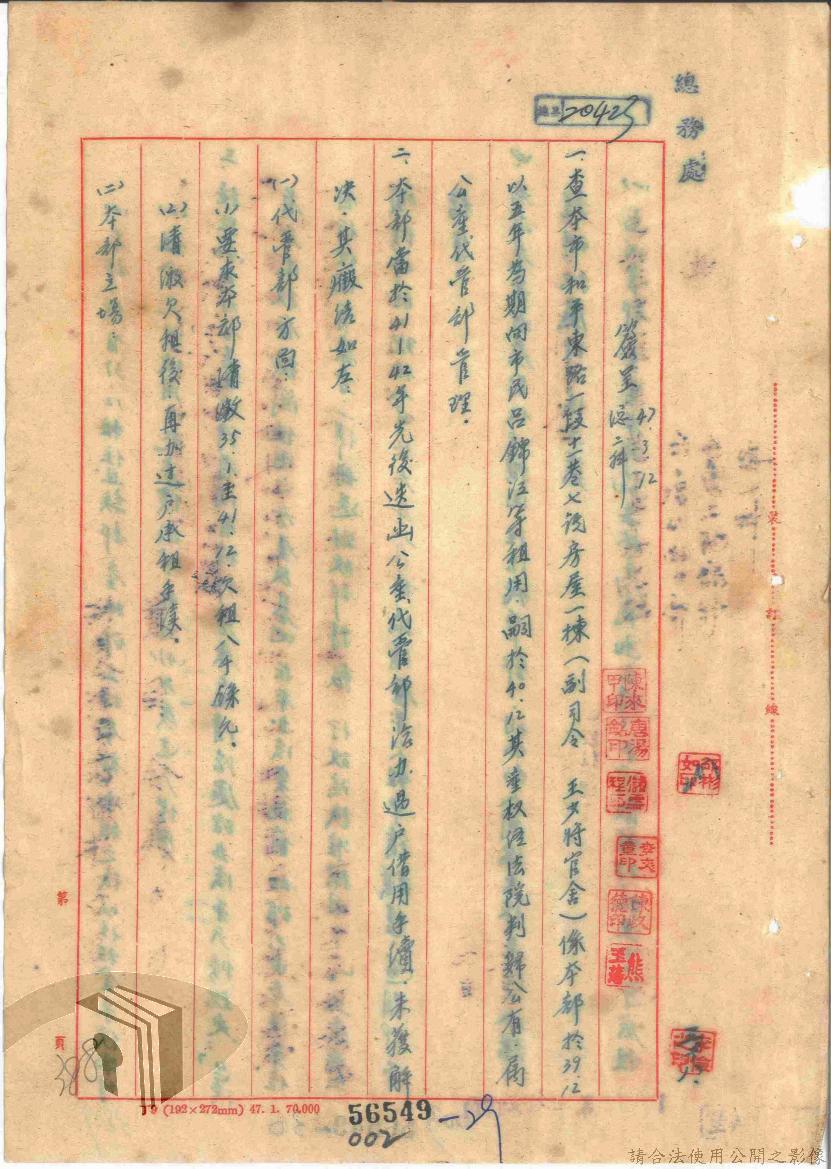 總務處
20425
簽呈 47.3.12
總二科
一、查本市和平東路一段十一巷七號房屋一棟(副司令 王少將官舍)係本部於39.12
以五年為期向市民呂錦江等租用,嗣於40.12其產權經法院判歸公有,屬
公產代管部管理。
二、本部當於41、42年先後迭函公產代管部洽办過户借用手續,未獲解
决,其癥結如左:
(一)代管部方面:
(1)要求本部清繳35.1.至41.12.欠租八千餘元。
(2)清繳欠租後,再办过户承租手續。
(二)本部立場:
裝
訂
線
第
頁
388
19 (192×272mm) 47. 1. 70.000
56549
002
請合法使用公開之影像